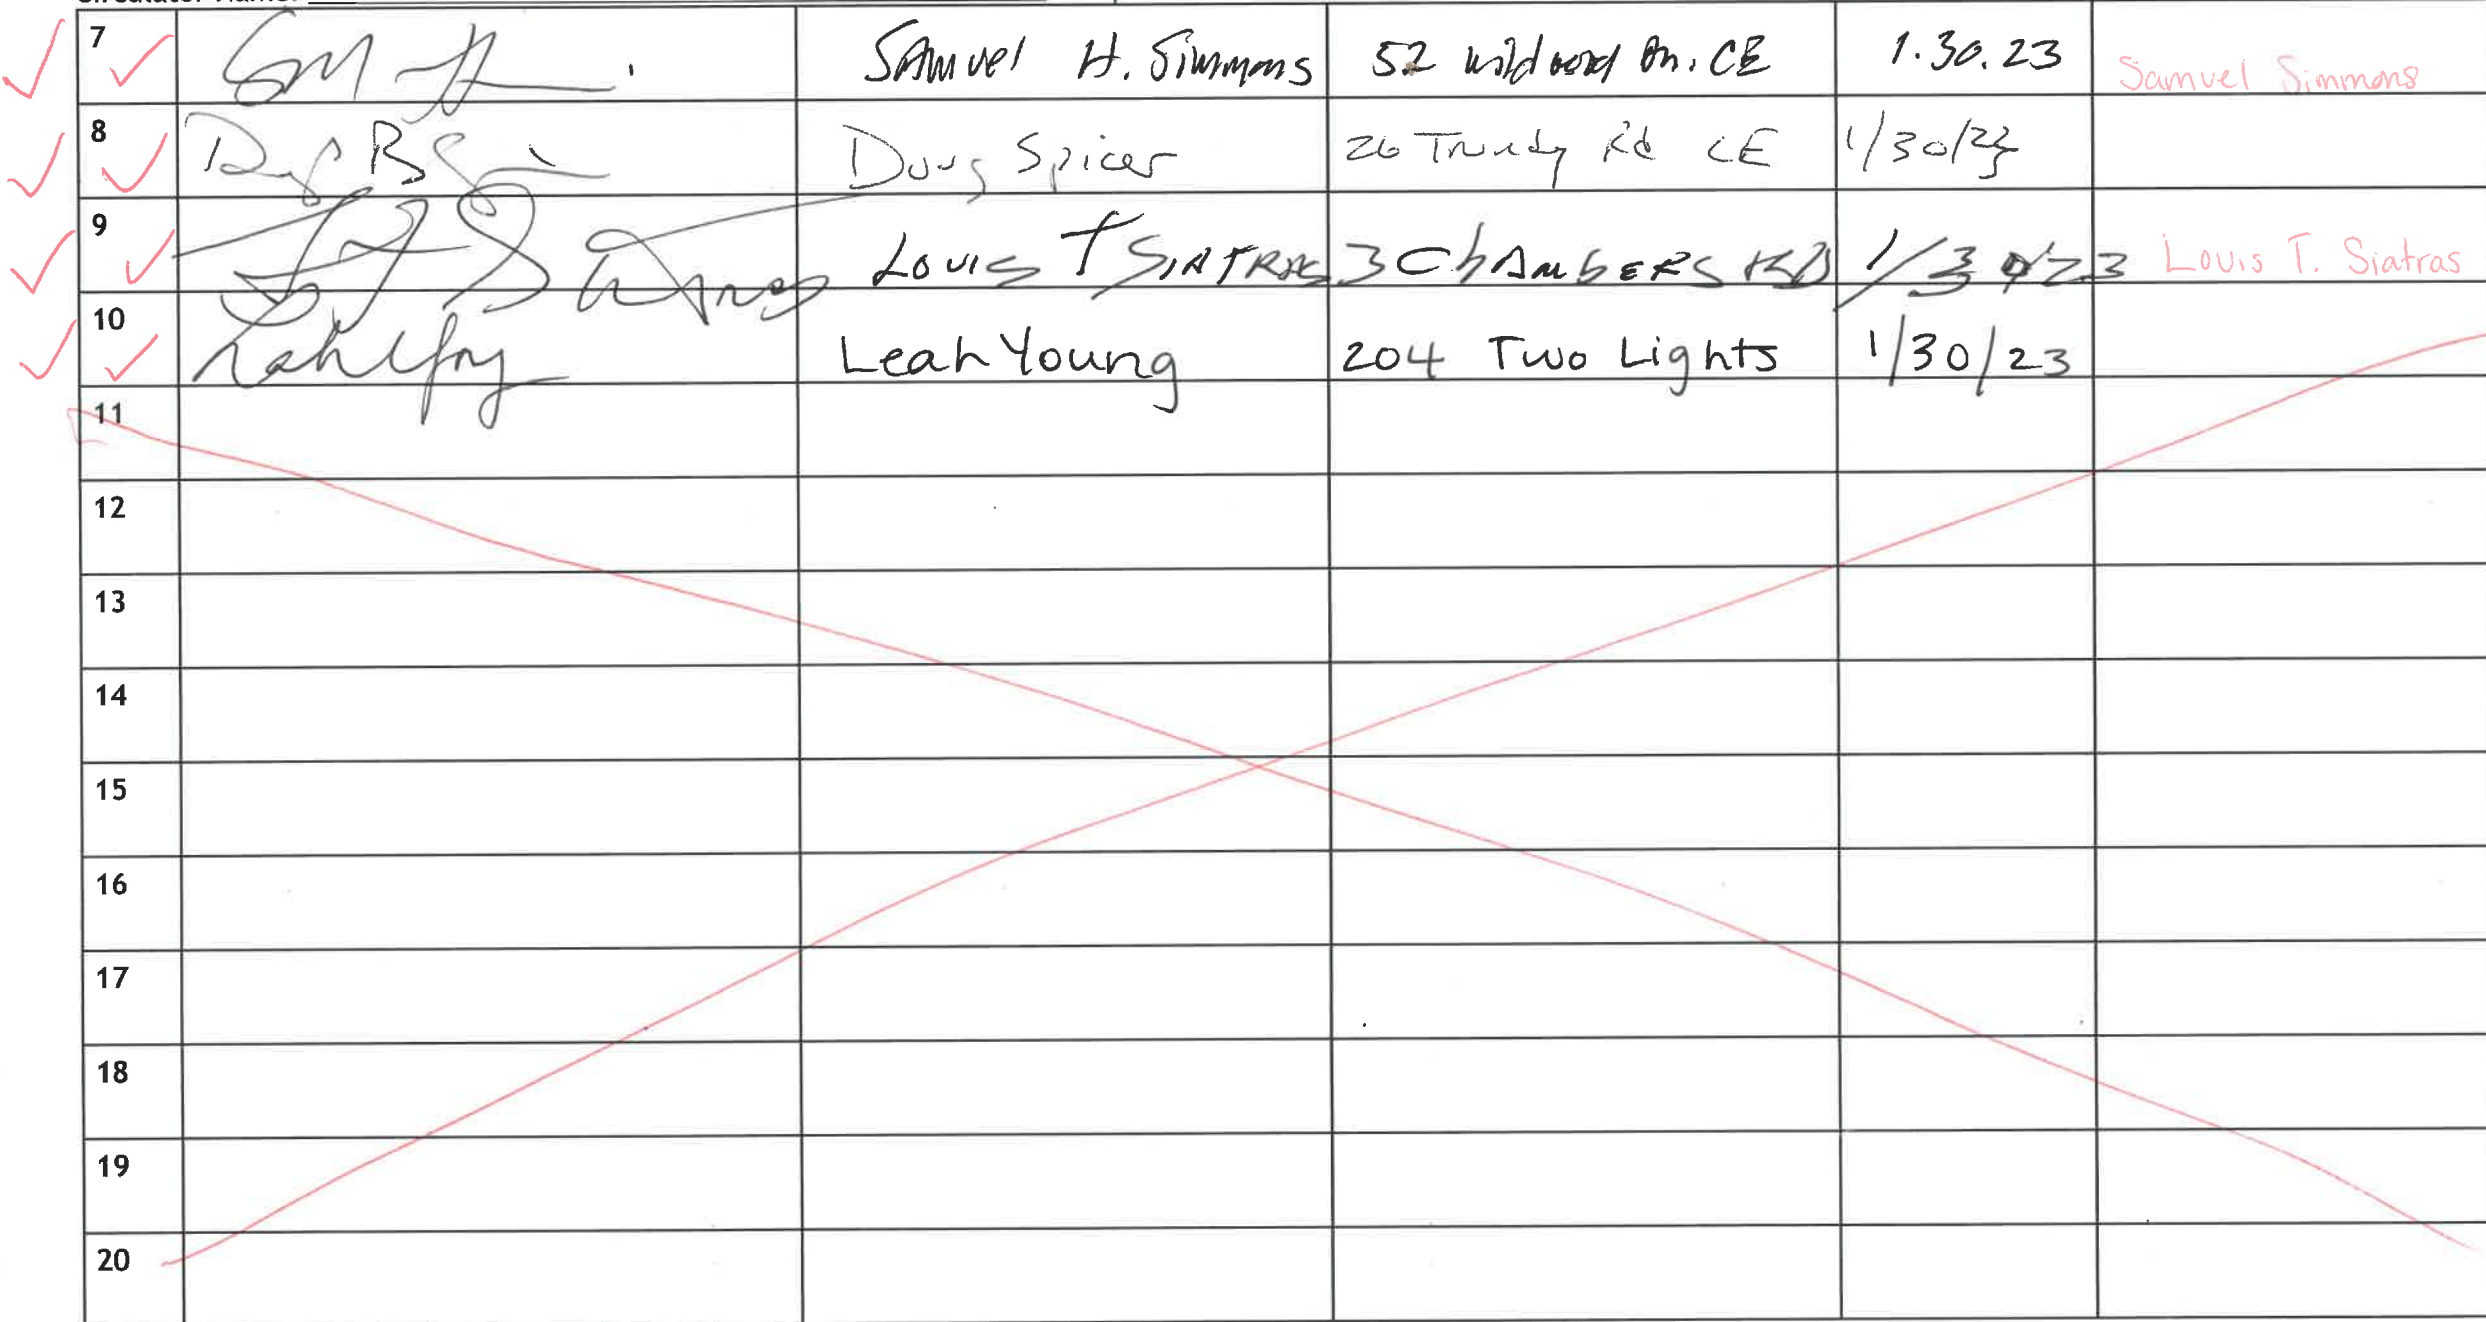 Circulator Name:
7 Samuel H. Simmons 52 Wildwood Dr. CE 1.30.23 Samuel Simmons
8 Doug Spicer 26 Trundy Rd CE 1/30/23
9 Louis T SIATRAS 3 ChAMbERS RD 1/30/23 Louis T. Siatras
10 Leah Young 204 Two Lights 1/30/23
11
12
13
14
15
16
17
18
19
20